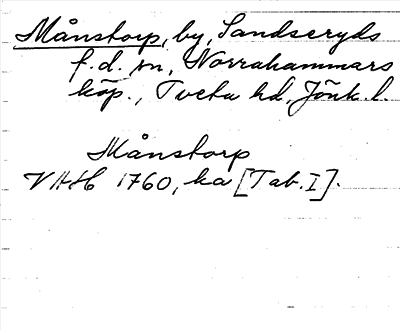 Månstorp, by, Sandseryds
f.d. sn, Norrahammars
köp., Tveta hd, Jönk. l.
Månstorp
VHH 1760, ka [Tab. I].